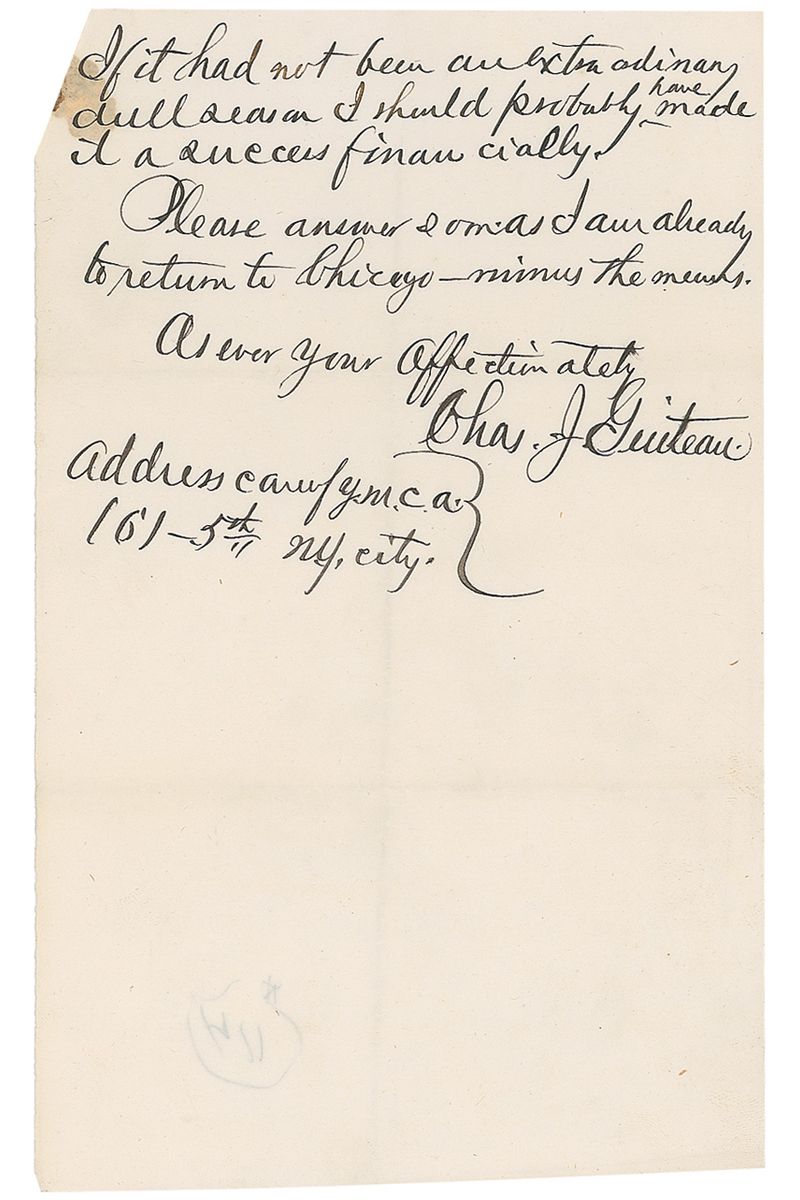 If it had not been an extraordinary
dull season I should probably have made
it a success financially.
Please answer soon: as I am already
to return to Chicago — minus the means.
As ever your Affectionately
Chas. J Guiteau.
Address care of Y.M.C.A.
161 - 5th NY. city.